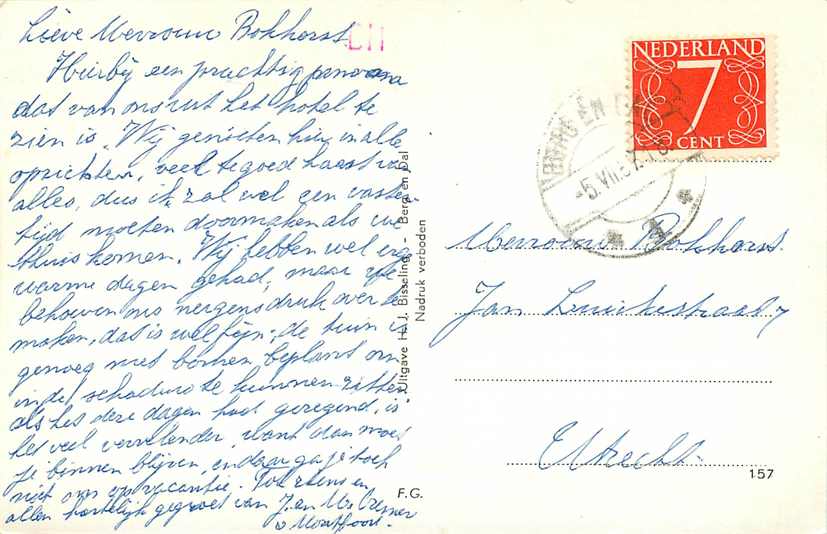 Lieve Mevrouw Bokhorst,
Hierbij een prachtig panorama
dat van ons uit het hotel te
zien is. Wij genieten hier in alle
opzichten, veel te goed haast van
alles, dus ik zal wel een vasten
tijd moeten doormaken als we
thuis komen. Wij hebben wel
warme dagen gehad, maar we
behoeven ons nergens druk over te
maken, dat is wel fijn; de tuin is
genoeg met bomen beplant om
in de schaduw te kunnen zitten
als het deze dagen had geregend, is
het veel vervelender, want dan moet
je binnen blijven, en daar ga je toch
niet om op vacantie. Tot ziens en
allen hartelijk gegroet van J. en
v Montfoort.
Uitgave H. J. Bisseling - Berg en Dal
Nadruk verboden
F.G.
NEDERLAND
7
CENT
BERG EN DAL
-5.VII.57.
1
Mevrouw Bokhorst
Jan Luickestraat 7
Utrecht.
157